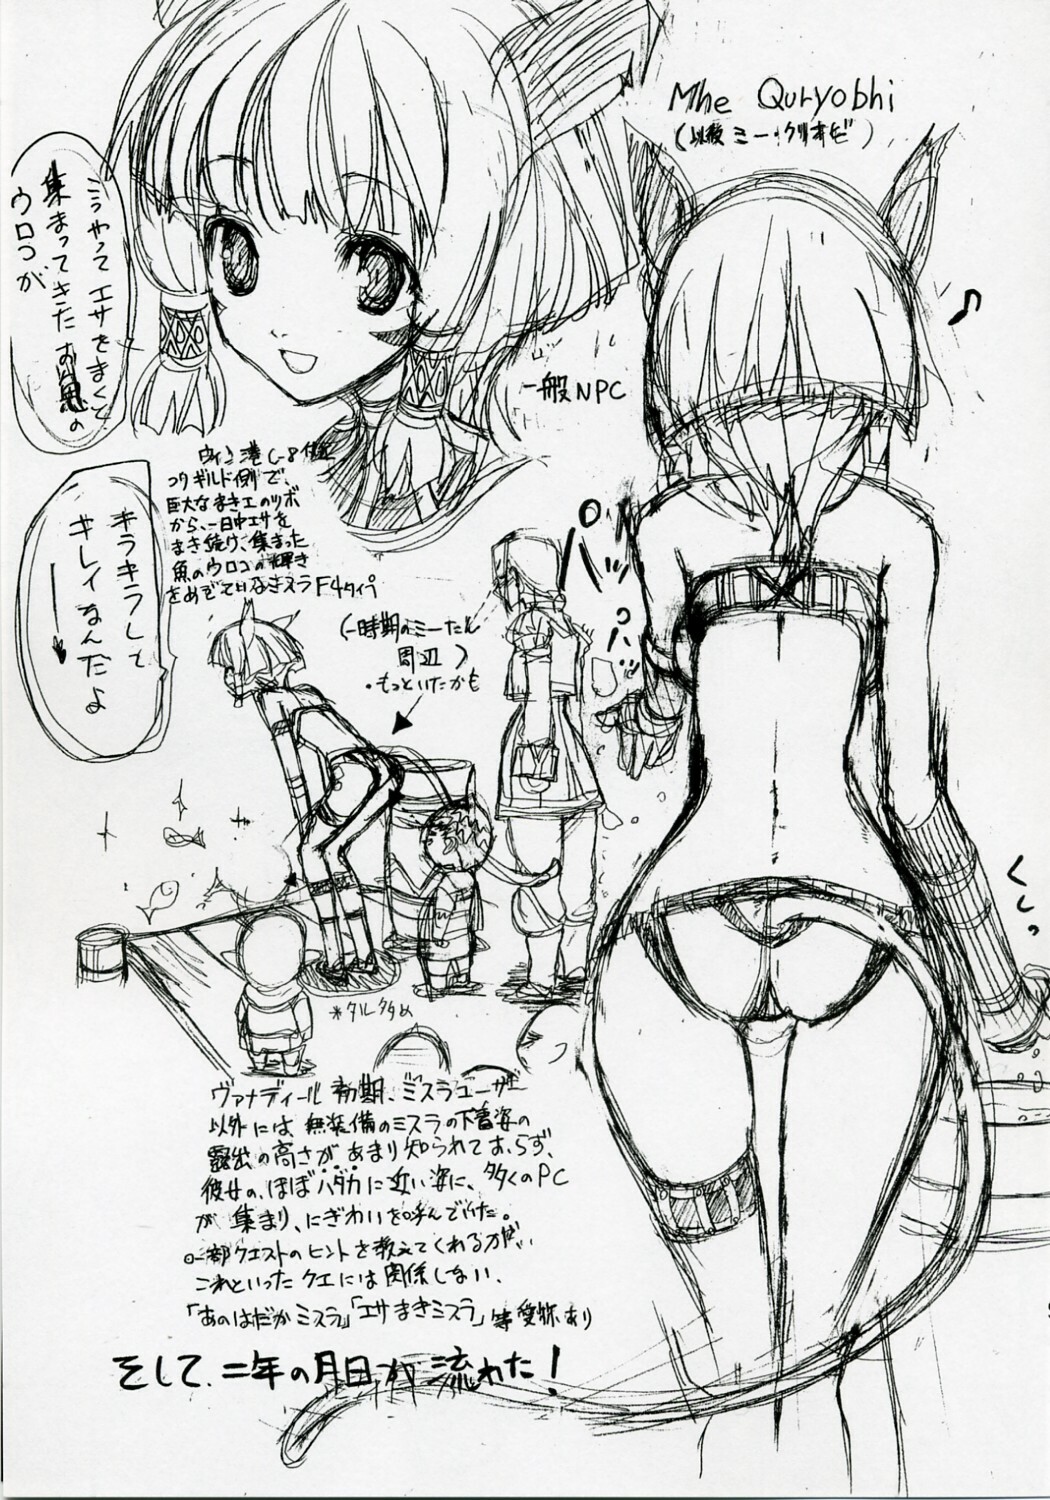 Mhe Quryobhi
(以後 ミー・クリオビ)
こうやって エサをまくと
集まってきた お魚の
ウロコが
一般NPC
キラキラして
キレイなんだよ
ウィン港 C-8 付近
コウギルド側で、
巨大なまきエのツボ
から、一日中エサを
まき続け、集まった
魚のウロコの輝き
をめでて F4タイプ
(一時期のミーたん
周辺)
・もっといたかも
*タル多め
ヴァナディール 初期、ミスラユーザー
以外には 無装備のミスラの下着姿の
露出の高さが あまり知られておらず、
彼女の、ほぼハダカに近い姿に、多くのPC
が 集まり、にぎわいを呼んでいた。
一部クエストのヒントを教えてくれる方だが、
これといったクエには関係しない。
「あのはだかミスラ」「エサまきミスラ」等 愛称あり
そして、二年の月日が 流れた!